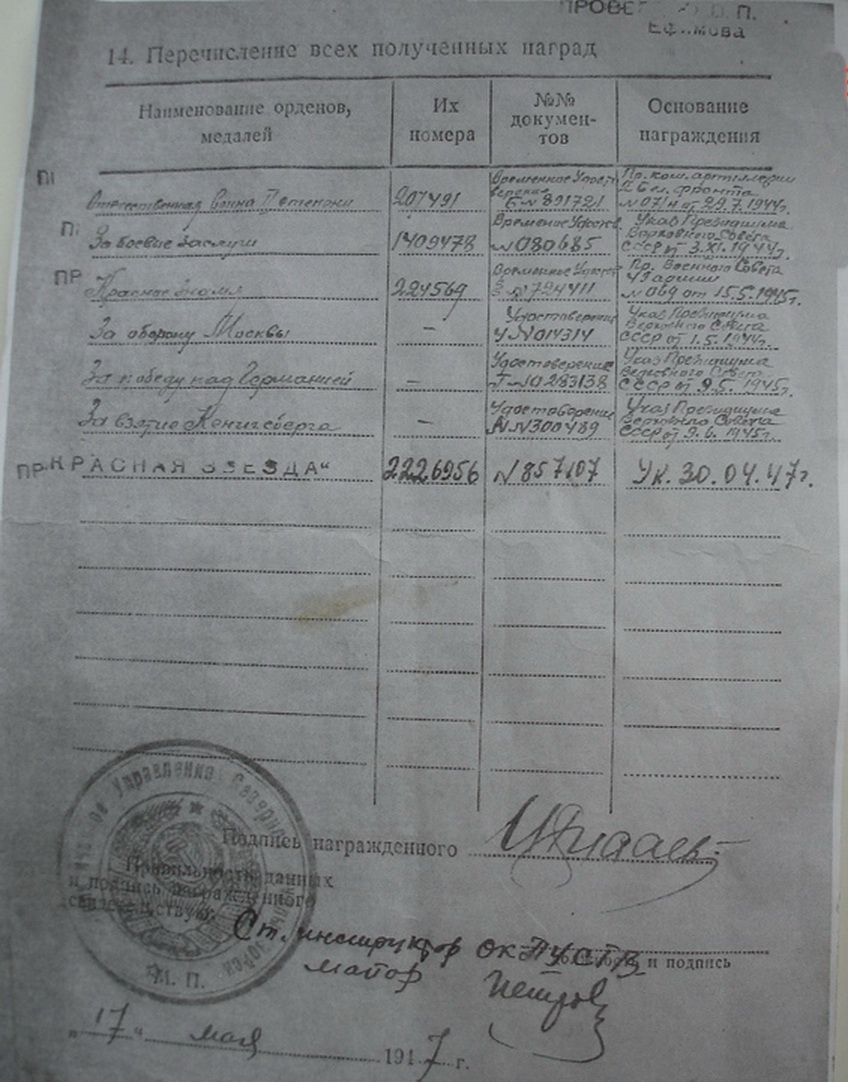 ПРОВЕ
П.
Ефимова
14. Перечисление всех полученных наград
Наименование орденов, медалей
Их номера
№№ докумен-тов
Основание награждения
Отечественная Война II степени 207491 Временное Удост верение Б № 891721 Пр. ком. артиллерии 2 Бел. фронта № 071н от 29.7.1944г.
За боевые заслуги 1409478 Временное Удост. № 080685 Указ Президиума Верховного Совета СССР от 3.XI.1944г.
ПР Красное Знамя 224569 Временное Удост № 724411 Пр. Военного Совета 43 армии № 069 от 15.5.1945г.
За оборону Москвы — Удостоверение У № 014314 Указ Президиума Верховного Совета СССР от 1.5.1944г.
За победу над Германией — Удостоверение № 0283138 Указ Президиума Верховного Совета СССР от 9.5.1945г.
За взятие Кенигсберга — Удостоверение № 300489 Указ Президиума Верховного Совета СССР от 9.6.1945г.
ПР. „КРАСНАЯ ЗВЕЗДА“ 2226956 № 857107 Ук. 30.04.47г.
Подпись награжденного
Правильность данных
и подпись награжденного
свидетельствую:
Ст. инструктор ОК ПУ СГВ
и подпись
майор Петров
М. П.
„17“ мая 1947 г.